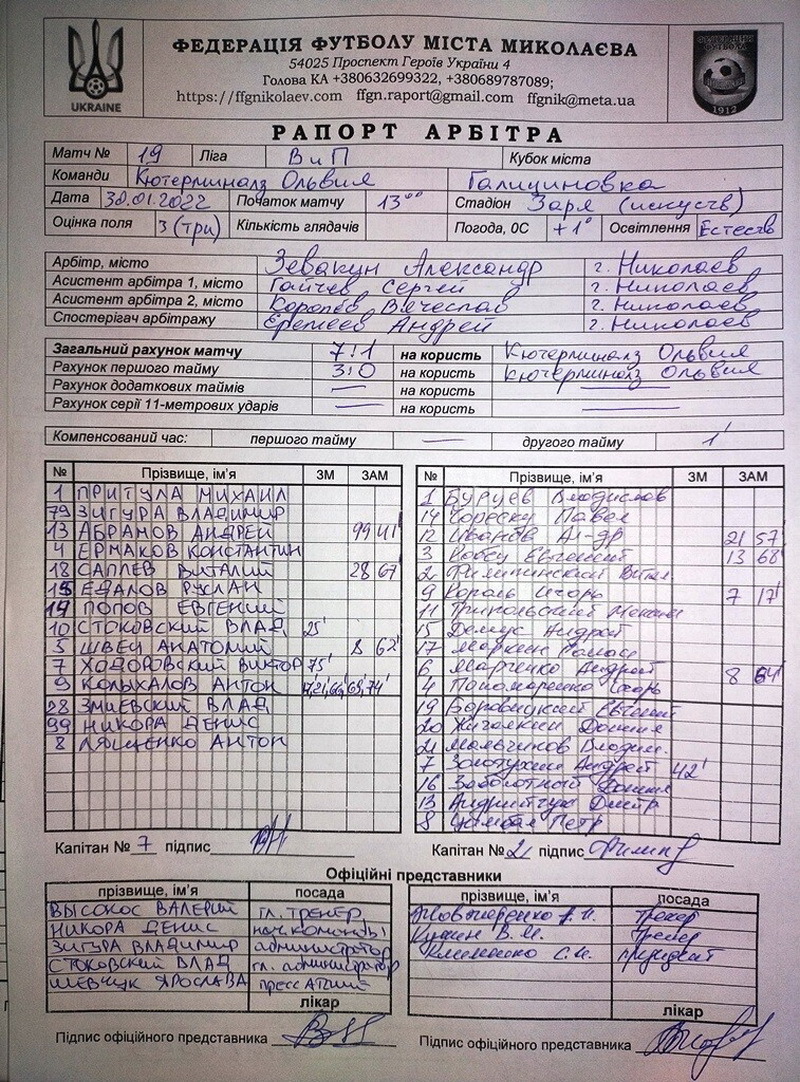 UKRAINE
ФЕДЕРАЦІЯ ФУТБОЛУ МІСТА МИКОЛАЄВА
54025 Проспект Героїв України 4
Голова КА +380632699322, +380689787089;
https://ffgnikolaev.com ffgn.raport@gmail.com ffgnik@meta.ua
ФЕДЕРАЦІЯ ФУТБОЛУ
1912
РАПОРТ АРБІТРА
Матч № 19 Ліга ВиП Кубок міста
Команди Кютерминалз Ольвия Галициновка
Дата 30.01.2022 Початок матчу 13 00 Стадіон Заря (искуств)
Оцінка поля 3 (три) Кількість глядачів Погода, 0С +1° Освітлення Естеств
Арбітр, місто Зевакун Александр г. Николаев
Асистент арбітра 1, місто Гайчев Сергей г. Николаев
Асистент арбітра 2, місто Вячеслав г. Николаев
Спостерігач арбітражу Еремеев Андрей г. Николаев
Загальний рахунок матчу 7:1 на користь Кютерминалз Ольвия
Рахунок першого тайму 3:0 на користь Кютерминалз Ольвия
Рахунок додаткових таймів — на користь —
Рахунок серії 11-метрових ударів — на користь —
Компенсований час: першого тайму — другого тайму 1'
№ Прізвище, ім'я ЗМ ЗАМ
1 ПРИТУЛА МИХАИЛ
79 ЗИГУРА ВЛАДИМИР
13 АБРАМОВ АНДРЕЙ 99 41'
4 ЕРМАКОВ КОНСТАНТИН
18 САПЛЕВ ВИТАЛИЙ 28 67
15 ЕДАЛОВ РУСЛАН
14 ПОПОВ ЕВГЕНИЙ
10 СТОКОВСКИЙ ВЛАД 25'
5 ШВЕЦ АНАТОЛИЙ 8 62'
7 ХОДОРОВСКИЙ ВИКТОР 75'
9 КОЛЫХАЛОВ АНТОН
28 ЗМИЕВСКИЙ ВЛАД
99 НИКОРА ДЕНИС
8 ЛЯЩЕНКО АНТОН
Капітан № 7 підпис
№ Прізвище, ім'я ЗМ ЗАМ
1 Буруев Владислав
14 Павел
12 Иванов Ал-др 21 57'
3 Евгений 13 68'
2
9 Король Игорь 7 17'
11
15 Андрей
17
6 Марченко Андрей 8
4 Пономаренко Игорь
19 Евгений
20
21 Мальчиков Владим.
7 Золотухин Андрей 42'
16 Заболотный
13 Андрийчук Дмитр
8 Цымбал Петр
Капітан № 2 підпис
Офіційні представники
прізвище, ім'я посада
ВЫСОКОС ВАЛЕРИЙ гл. тренер
НИКОРА ДЕНИС нач команды
ЗИГУРА ВЛАДИМИР администратор
СТОКОВСКИЙ ВЛАД гл. администратор
ШЕВЧУК ЯРОСЛАВА
лікар
Підпис офіційного представника
прізвище, ім'я посада
тренер
В. М. тренер
Клименко С. Н. президент
лікар
Підпис офіційного представника